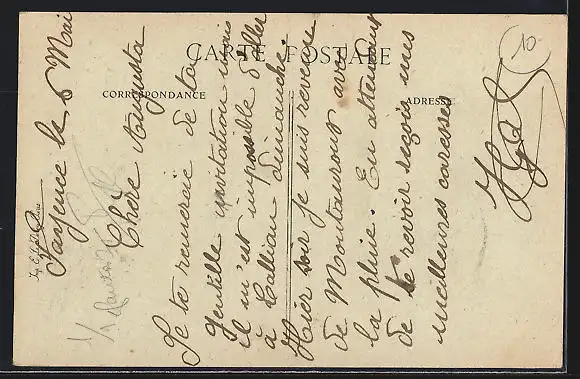 CARTE POSTALE
CORRESPONDANCE
ADRESSE
Fayence le 6 Mai
Chère Augusta
Je te remercie de ta
gentille invitation mais
il m'est impossible d'aller
à Callian dimanche.
Hier soir je suis revenue
de Montauroux avec
la pluie. En attendant
de te revoir reçois mes
meilleures caresses
10-